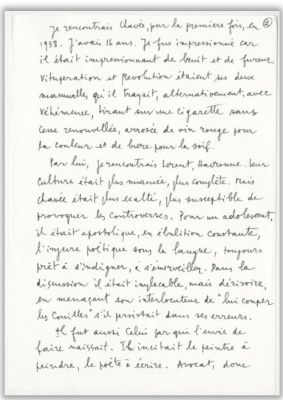 ②
Je rencontrais Chavée, pour la première fois, en
1938. J'avais 16 ans. Je fus impressionné car
il était impressionnant de bruit et de fureur.
Vitupération et Révolution étaient les deux
mamelles qu'il trayait, alternativement, avec
véhémence, tirant sur une cigarette sans
cesse renouvellée, arrosée de vin rouge pour
la couleur et de bière pour la soif.
Par lui, je rencontrais Lorent, Havrenne. Leur
culture était plus nuancée, plus complète. Mais
Chavée était plus exalté, plus susceptible de
provoquer les controverses. Pour un adolescent,
il était apostolique, en ébulition constante,
l'injure poétique sous la langue, toujours
prêt à s'indigner, à s'émerveiller. Dans la
discussion il était implacable, mais dérisoire,
en menaçant son interlocuteur de "lui couper
les couilles" s'il persistait dans ses erreurs.
Il fut aussi celui par qui l'envie de
faire naissait. Il incitait le peintre à
peindre, le poète à écrire. Avocat, donc